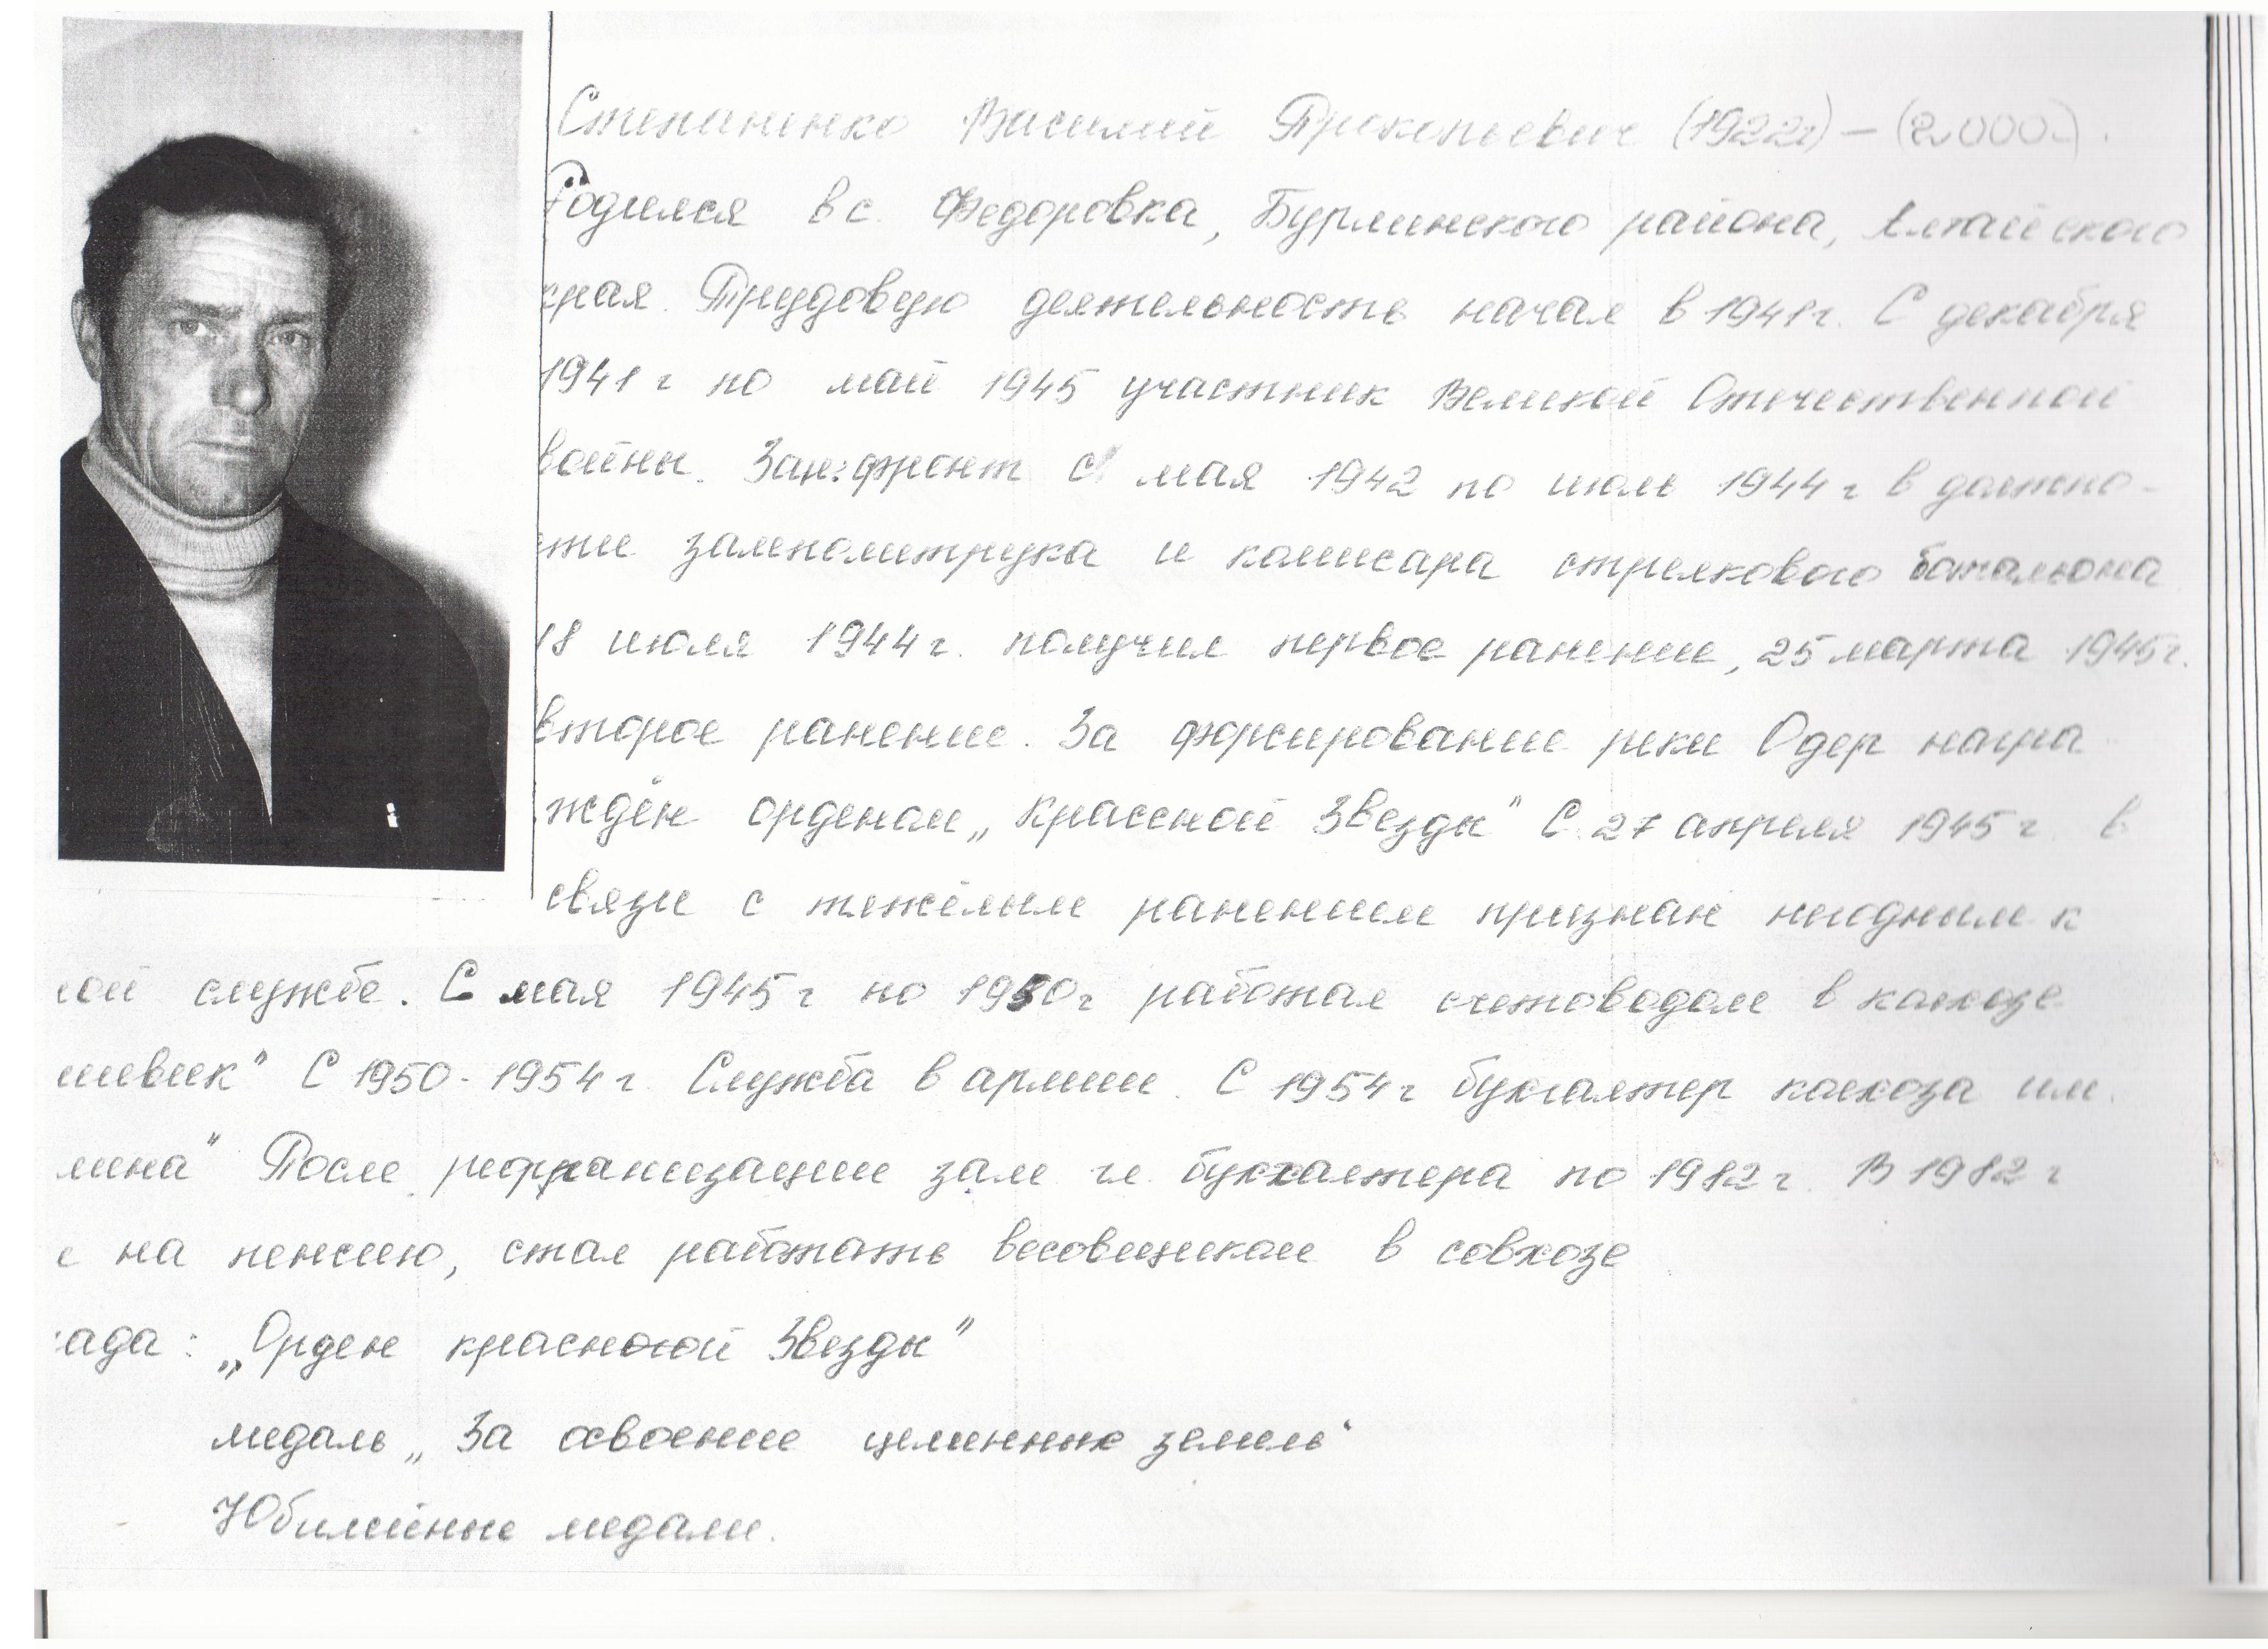 Степаненко Василий Прокопьевич (1922г) – (2000г).
Родился в с. Федоровка, Бурлинского района, Алтайского
края. Трудовую деятельность начал в 1941г. С декабря
1941г по май 1945 участник Великой Отечественной
войны. Зап: фронт с мая 1942 по июль 1944г в должно-
сти замполитрука и комисара стрелкового батальона
18 июля 1944г. получил первое ранение, 25 марта 1945г.
второе ранение. За форсирование реки Одер награ-
ждён орденом „Красной Звезды" С 27 апреля 1945г в
связи с тяжёлым ранением признан негодным к
ной службе. С мая 1945г по 1950г работал счетоводом в колхозе
шевик" С 1950-1954г. Служба в армии. С 1954г бухгалтер колхоза им.
лина" После реорганизации зам гл. бухгалтера по 1982г. В 1982г
л на пенсию, стал работать весовщиком в совхозе
рада: „Орден красной Звезды"
медаль „За освоение целинных земель"
Юбилейные медали.